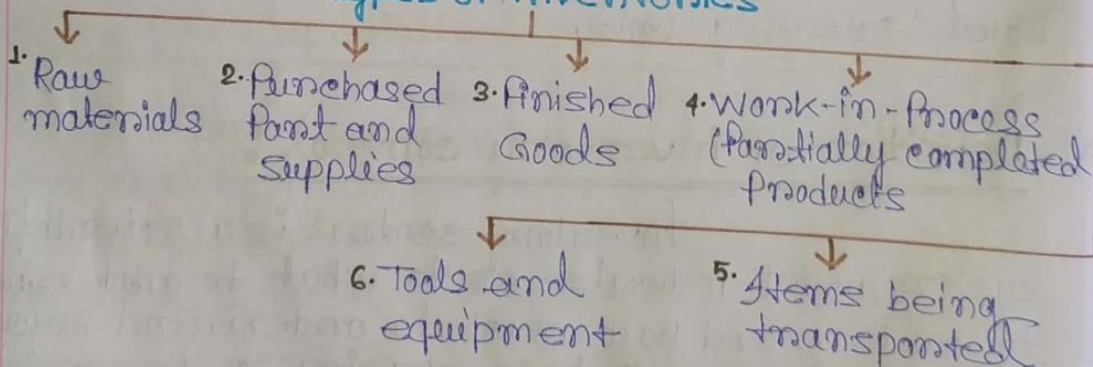 Types of Inventories
1. Raw
materials
2. Purchased
Part and
supplies
3. Finished
Goods
4. Work-in-Process
(Partially completed
Products
6. Tools and
equipment
5. Items being
transported